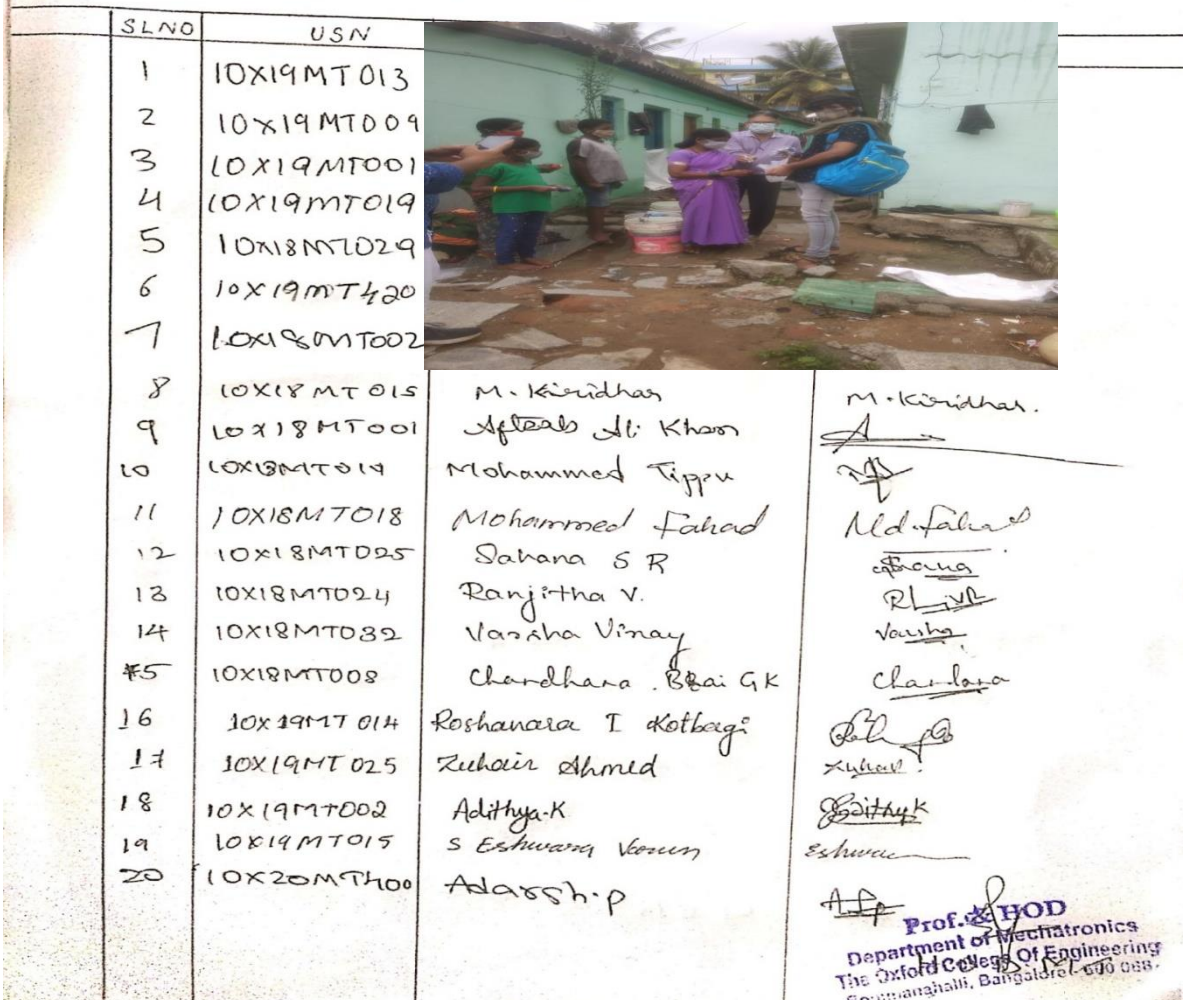 SLNO USN
1 10X19MT013
2 10X19MT009
3 10X19MT001
4 10X19MT019
5 10X18MT029
6 10X19MT420
7 10X18MT002
8 10X18MT015 M. Kiridhar M. Kiridhar.
9 10X18MT001 Aftaab Ali Khan
10 10X18MT019 Mohammed Tippu
11 10X18MT018 Mohammed Fahad Md. Fahad
12 10X18MT025 Sahana S R
13 10X18MT024 Ranjitha V.
14 10X18MT032 Varsha Vinay Varsha
15 10X18MT008 Chandhana . Bhai G K Chandana
16 10X19MT014 Roshanara I Kotbagi
17 10X19MT025 Zuhair Ahmed
18 10X19MT002 Adithya.K Adithya K
19 10X19MT015 S Eshwara Varun Eshwar
20 10X20MT400 Adarsh.P
Prof. & HOD
Department of Mechatronics
The Oxford College Of Engineering
Bangalore